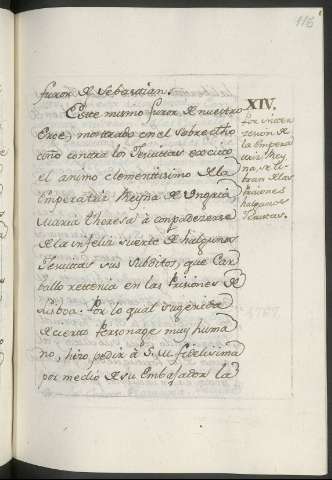 116
furor de Sebastian.
Este mismo furor de nuestro
Eroe, mostrado en el sobredicho
caso contra los Jesuitas excito
el animo clementissimo de la
Emperatriz Reyna de Ungria
Maria Theresa à compadecerse
de la infeliz suerte de halgunos
Jesuitas sus subditos, que Car-
ballo retenia en las Prisiones de
Lisboa. Por lo qual sugerida
de cierto Personage muy huma-
no, hizo pedir à S. M. fidelisima
por medio de su Embajador la
XIV.
Por interce-
sion de
la Empera-
triz Rey-
na, se li-
bran de las
prisiones
halgunos
Jesuitas.